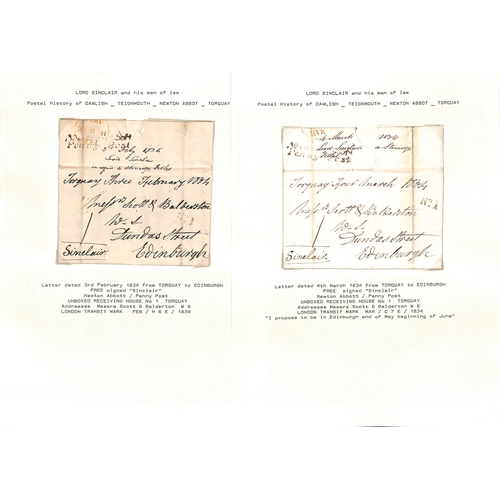 LORD SINCLAIR and his man of law
Postal History of DAWLISH _ TEIGNMOUTH _ NEWTON ABBOT _ TORQUAY
Feby 1834
Torquay Three February 1834
Messrs Scott & Balderston
W. S.
Dundas Street
Edinburgh
Sinclair
Letter dated 3rd February 1834 from TORQUAY to EDINBURGH
FREE signed "Sinclair"
Newton Abbott / Penny Post
UNBOXED RECEIVING HOUSE No 1 TORQUAY
Addressees Messrs Scott & Balderton W S
LONDON TRANSIT MARK FEB / H 6 E / 1834
LORD SINCLAIR and his man of law
Postal History of DAWLISH _ TEIGNMOUTH _ NEWTON ABBOT _ TORQUAY
4 March 1834
Lord Sinclair
Torquay Four March 1834
No. 1
Messrs Scott & Balderston
W. S.
Dundas Street
Edinburgh
Sinclair
Letter dated 4th March 1834 from TORQUAY to EDINBURGH
FREE signed "Sinclair"
Newton Abbott / Penny Post
UNBOXED RECEIVING HOUSE No 1 TORQUAY
Addressees Messrs Scott & Balderton W S
LONDON TRANSIT MARK MAR / C 7 E / 1834
"I propose to be in Edinburgh end of May beginning of June"